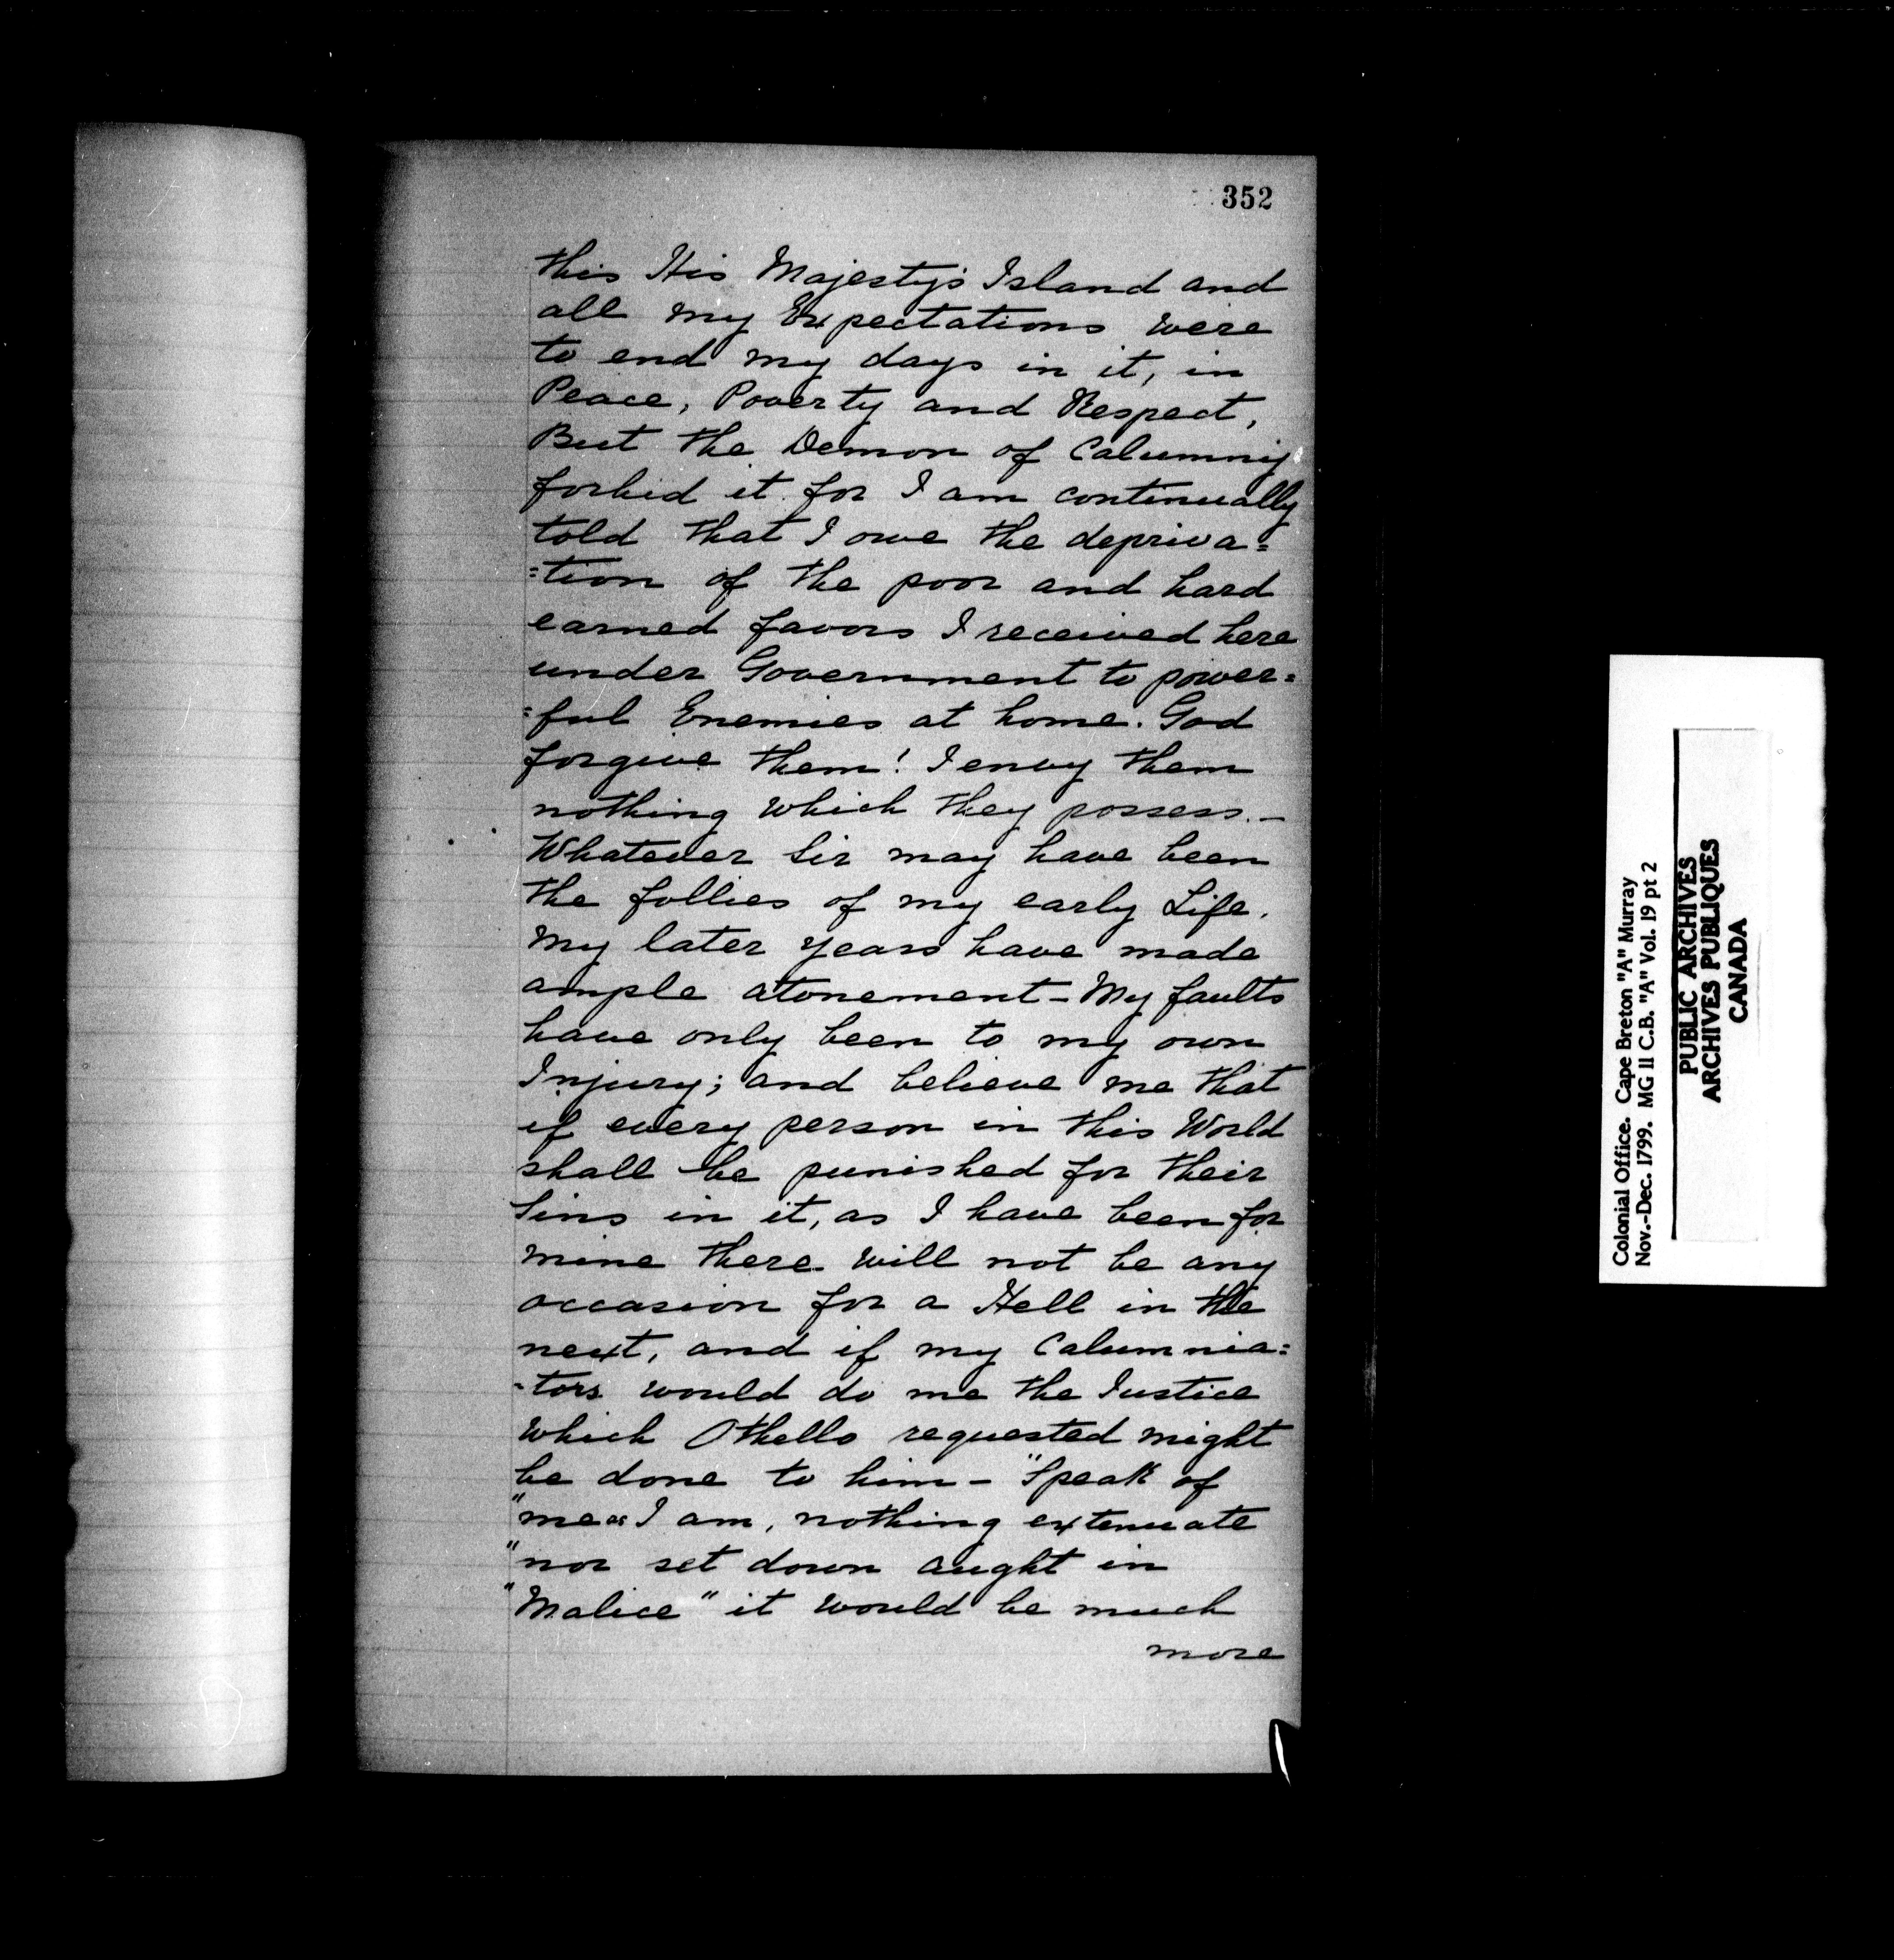 352
this His Majesty's Island and
all my Expectations were
to end my days in it, in
Peace, Poverty and Respect,
But the Demon of Calumny
forbid it for I am continually
told that I owe the depriva=
=tion of the poor and hard
earned favors I received here
under Government to power=
=ful Enemies at home. God
forgive them! I envy them
nothing which they possess.—
Whatever Sir may have been
the follies of my early Life.
My later years have made
ample atonement - My faults
have only been to my own
Injury; and believe me that
if every person in this World
shall be punished for their
Sins in it, as I have been for
mine there will not be any
occasion for a Hell in the
next, and if my Calumnia=
=tors would do me the Justice
which Othello requested might
be done to him - "Speak of
"me as I am, nothing extenuate
"nor set down aught in
"Malice" it would be much
more
Colonial Office. Cape Breton "A" Murray
Nov.-Dec. 1799. MG 11 C.B. "A" Vol. 19 pt 2
PUBLIC ARCHIVES
ARCHIVES PUBLIQUES
CANADA